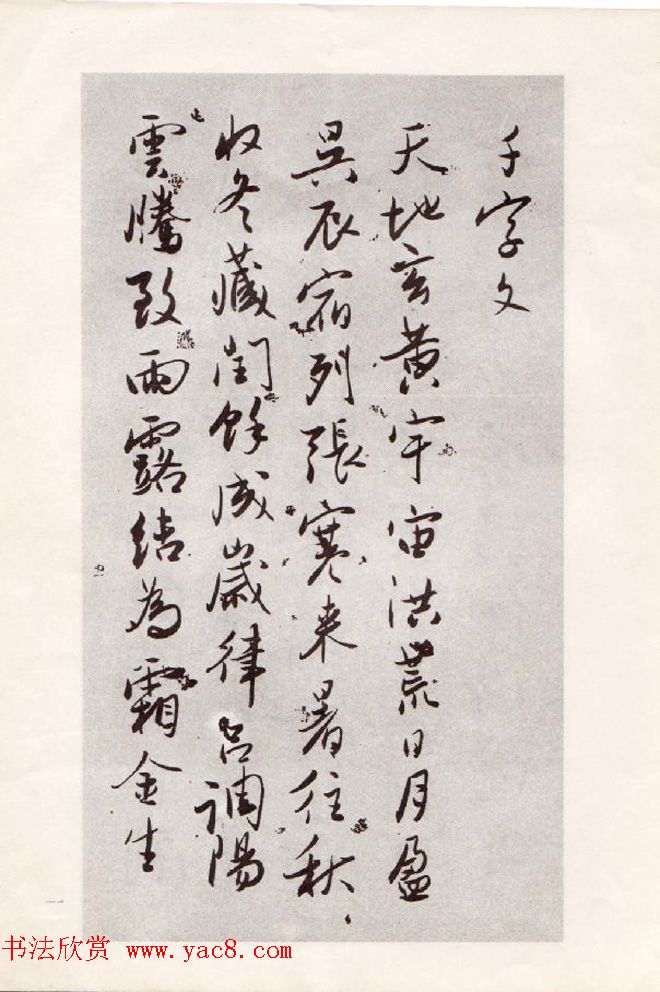 千字文
天地玄黄宇宙洪荒日月盈
昃辰宿列張寒来暑往秋
收冬藏閏餘成嵗律吕調陽
雲騰致雨露結為霜金生
书法欣赏 www.yac8.com